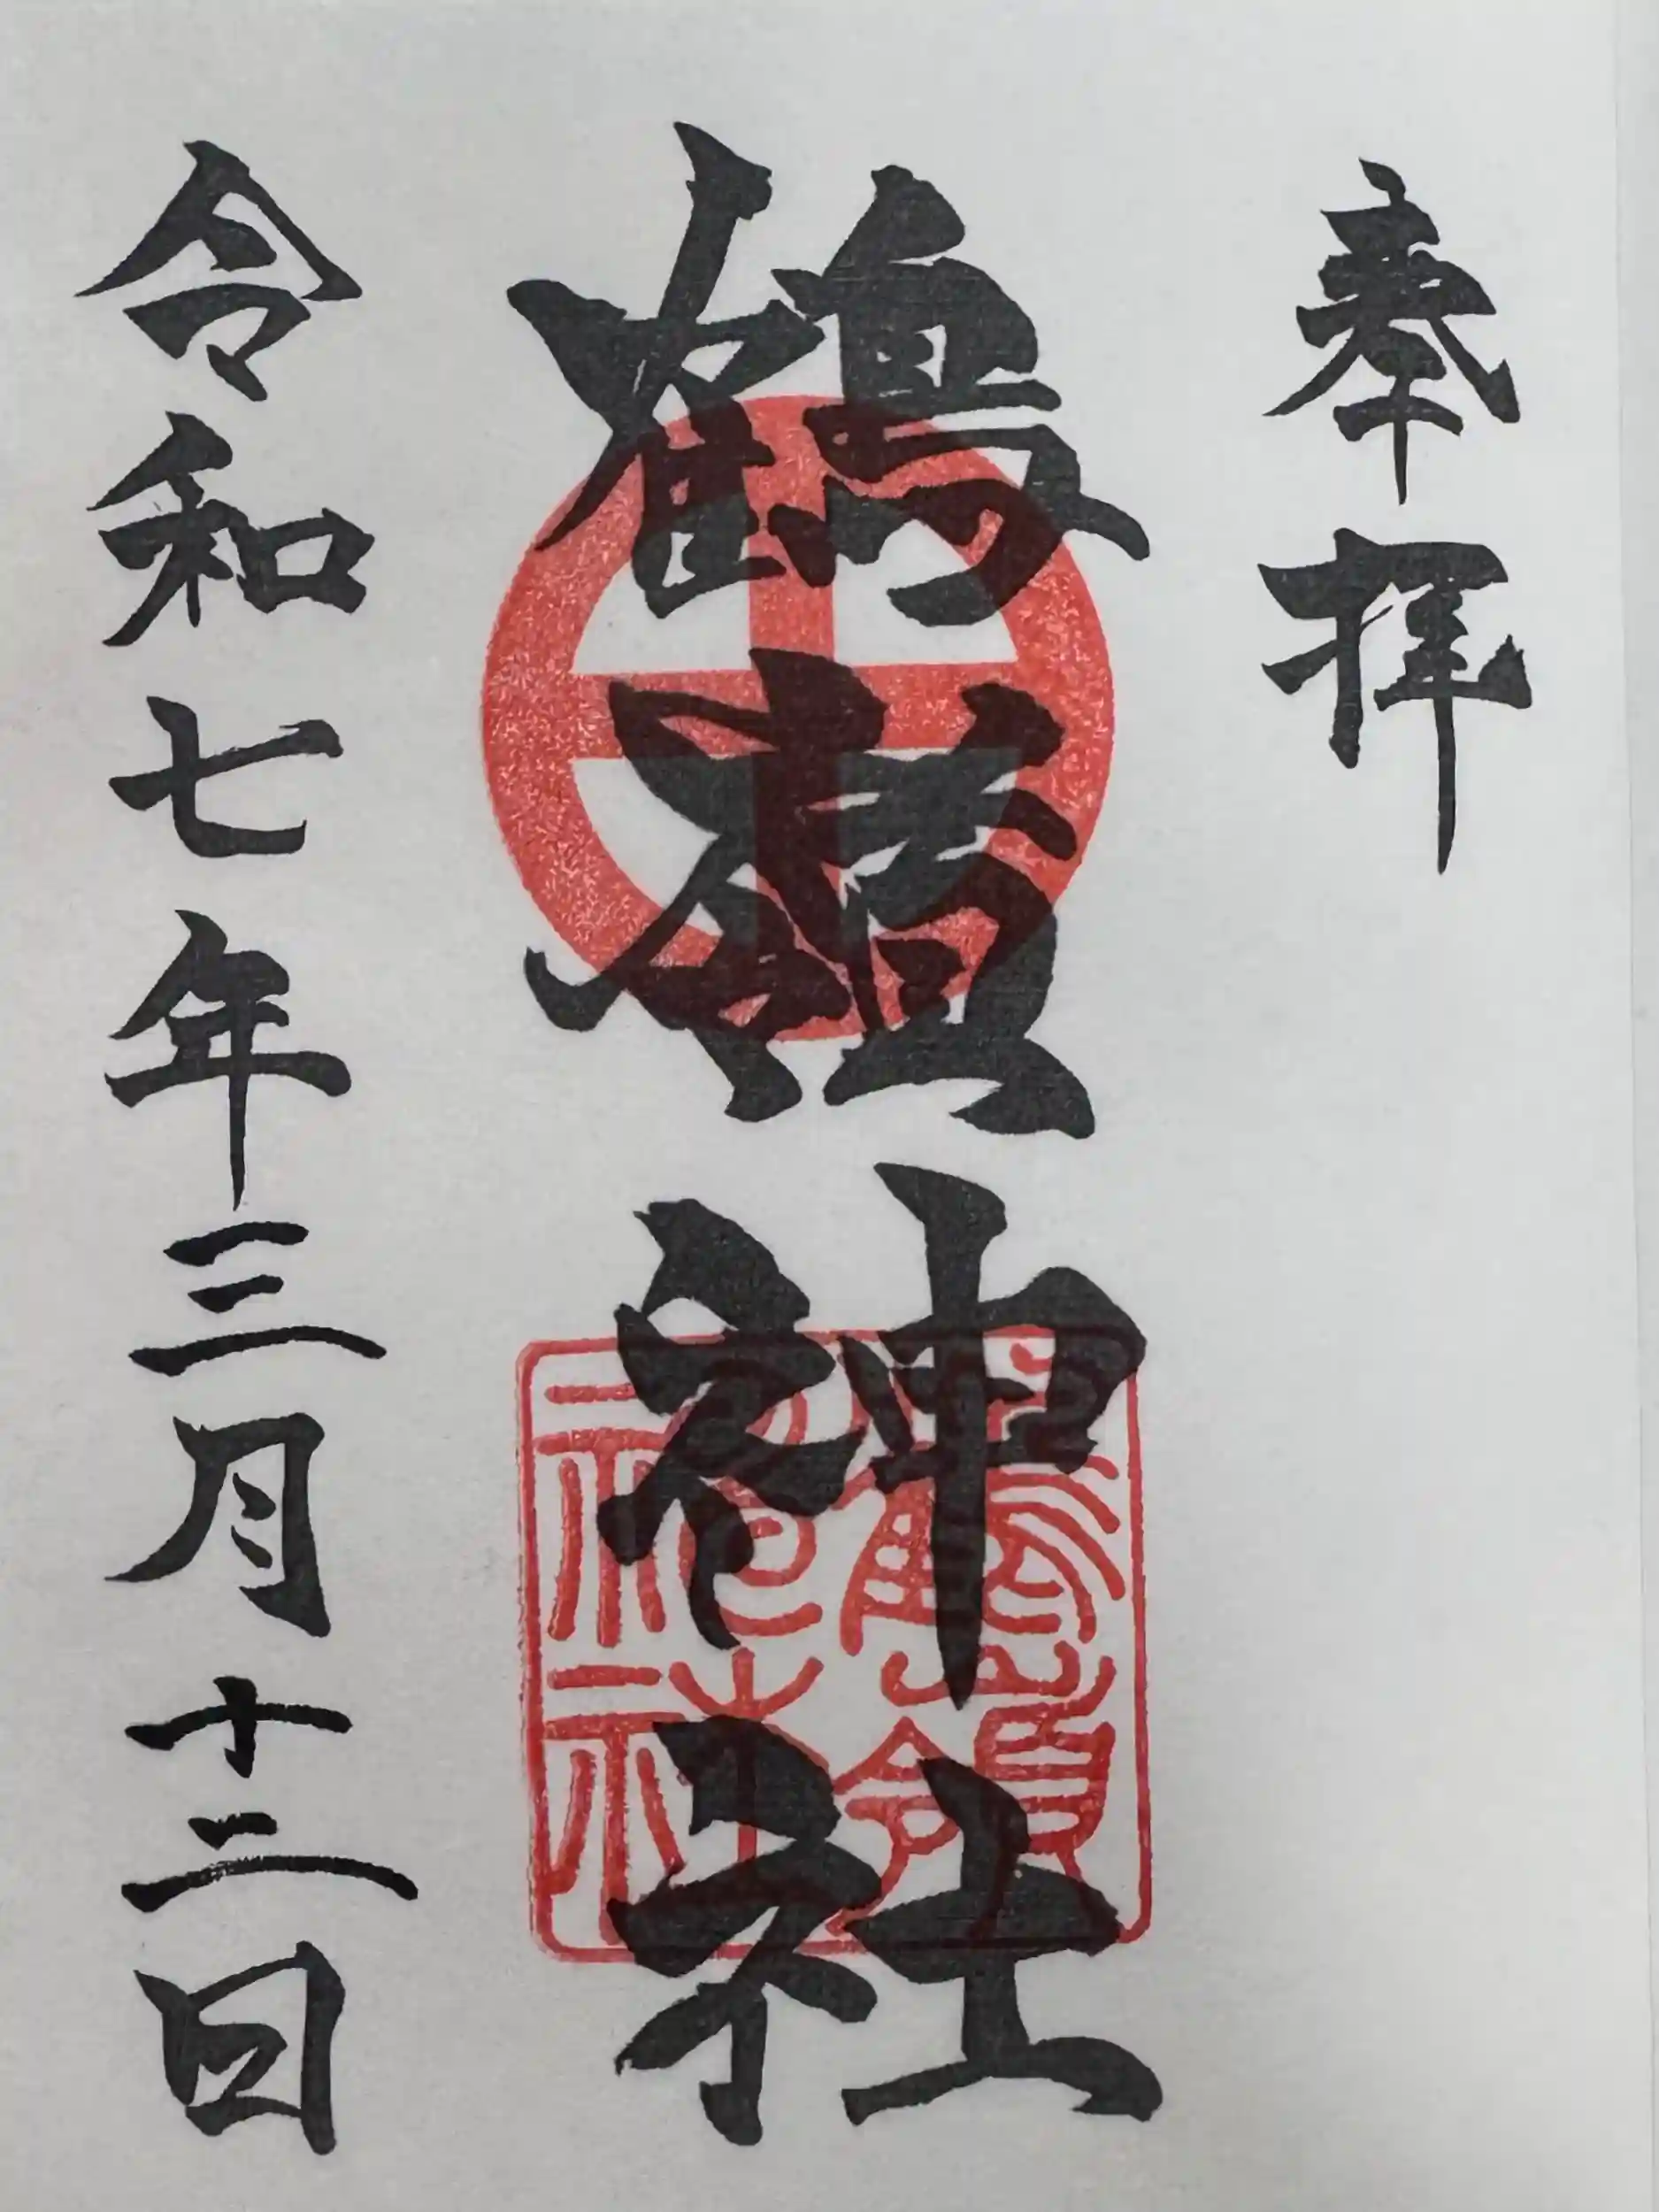 奉拝
鶴嶺神社
令和七年三月十二日
鶴嶺
神社